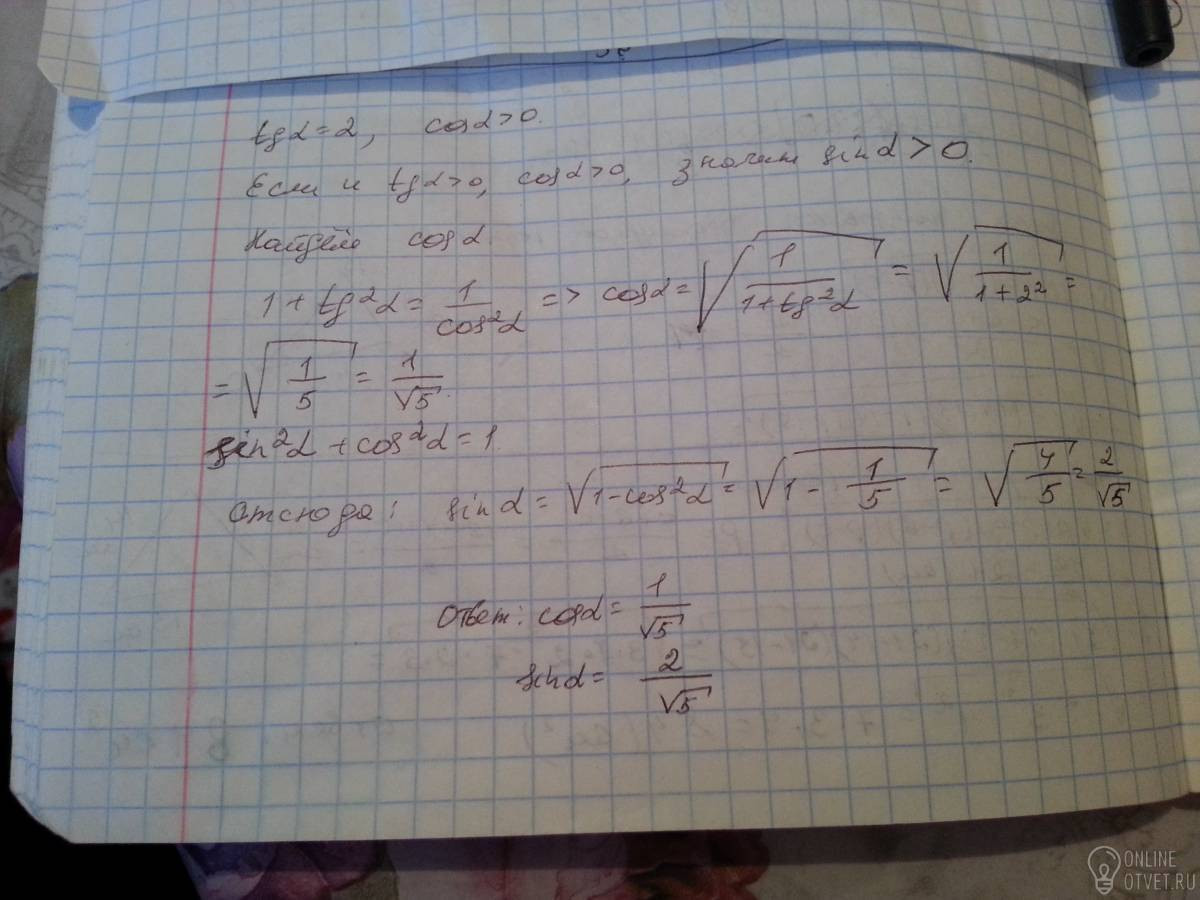 tgα = 2, cosα > 0.
Если и tgα > 0, cosα > 0, значит sinα > 0.
Найдём cosα
1 + tg²α = 1/cos²α => cosα = √(1/(1+tg²α)) = √(1/(1+2²)) =
= √(1/5) = 1/√5.
sin²α + cos²α = 1.
Отсюда: sinα = √(1-cos²α) = √(1 - 1/5) = √(4/5) = 2/√5
Ответ: cosα = 1/√5
sinα = 2/√5
ONLINE
OTVET.RU